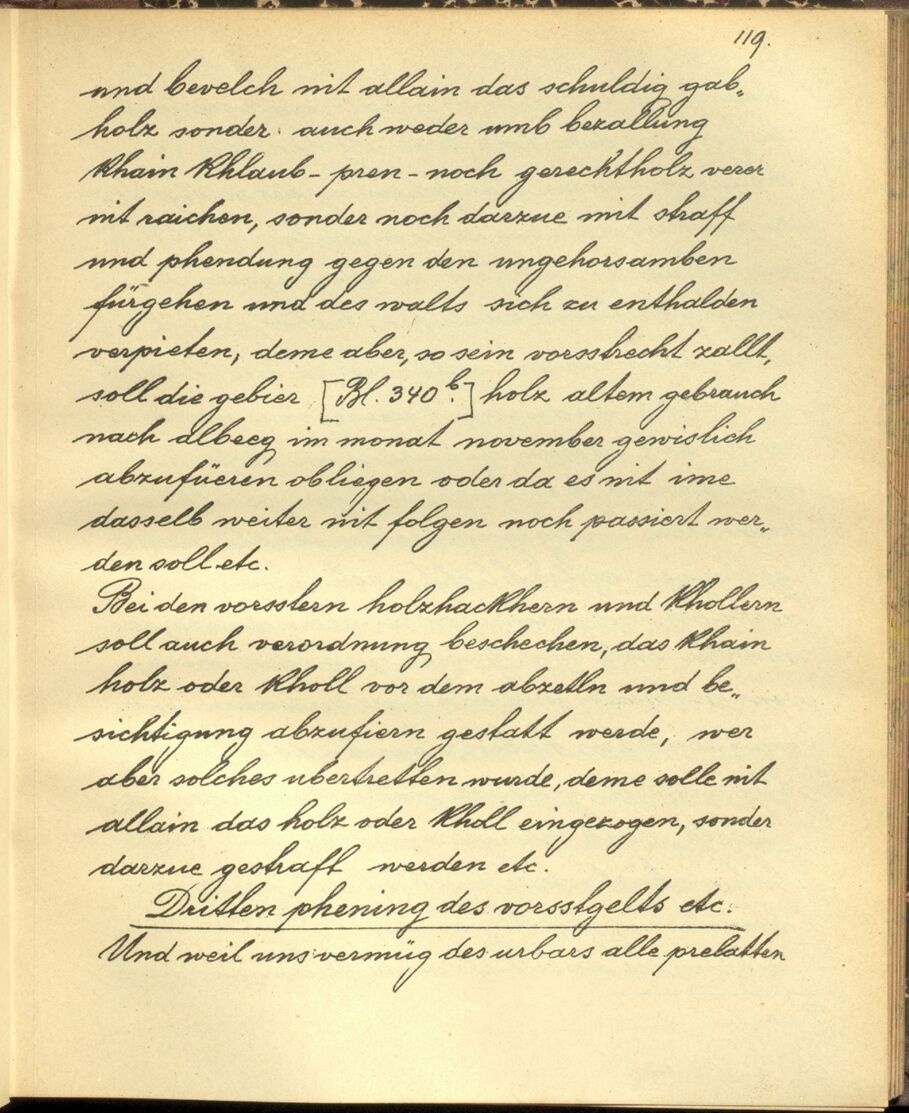 119.
und bevelch nit allain das schuldig gab„
holz sonder auch weder umb bezallung
khain khlaub- pren- noch gerechtholz verer
nit raichen, sonder noch darzue mit straff
und phendung gegen den ungehorsamben
fürgehen und des walts sich zu enthalden
verpieten, deme aber, so sein vorsstrecht zallt,
soll die gebier [Bl. 340b.] holz altem gebrauch
nach albeeg im monat november gewislich
abzufüeren obliegen oder da es nit ime
dasselb weiter nit folgen noch passiert wer„
den soll etc.
Bei den vorsstern holzhackhern und khollern
soll auch verordnung beschechen, das khain
holz oder kholl vor dem abzetln und be„
sichtigung abzufiern gestatt werde, wer
aber solches ubertretten wurde, deme solle nit
allain das holz oder kholl eingezogen, sonder
darzue gestrafft werden etc.
Dritten phening des vorsstgelts etc.
Und weil uns vermüg des urbars alle prelatten